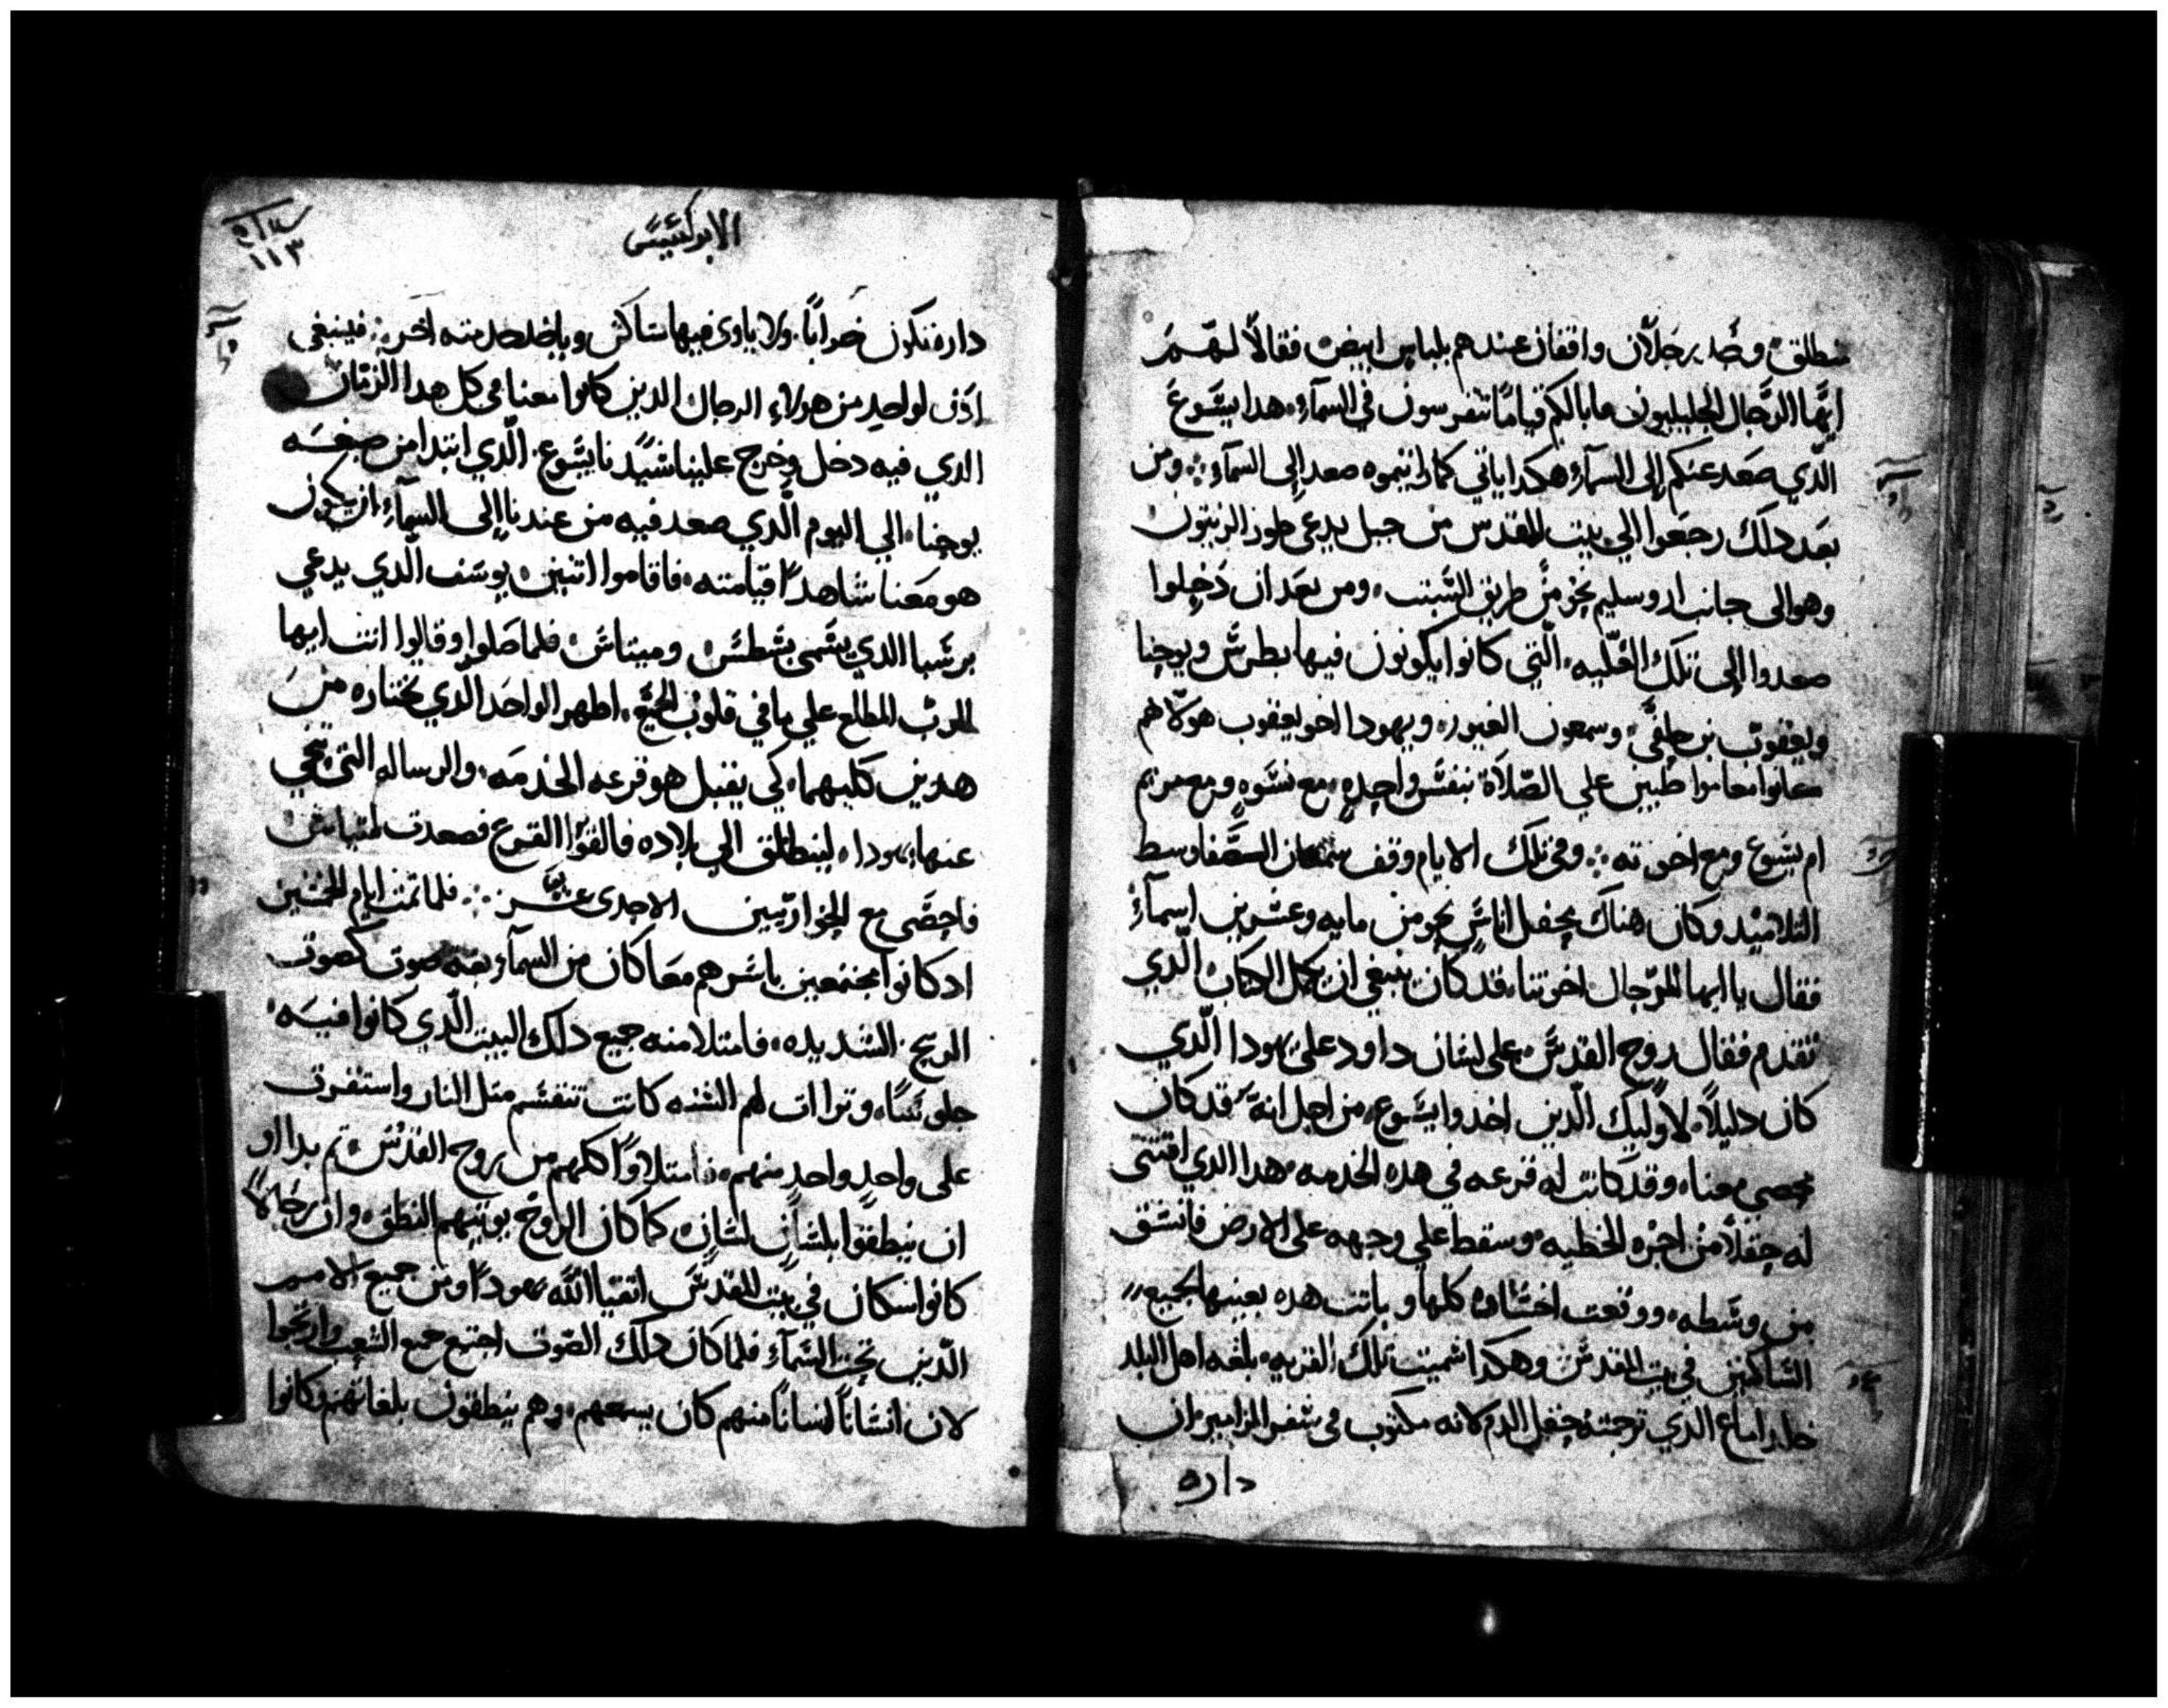 منطلق وجد رجلان واقفان عندهم بلباس ابيض فقالا لهم
ايها الرجال الجليليون ما بالكم قياما تتفرسون في السماء هدا يشوع
الدي صعد عنكم إلى السماء هكدا ياتي كما رايتموه صعد إلى السماء ومن
بعد دلك رجعوا الي بيت المقدس من جبل يدعى طور الزيتون
وهو الى جانب اروسليم نحو من طريق السبت ومن بعد ان دخلوا
صعدوا إلى تلك العليه التي كانوا يكونون فيها بطرس ويوحنا
ويعقوب بن حلفى وسمعون الغيور ويهودا اخو يعقوب هولاهم
كانوا معا مواظبين علي الصلاة بنفس واحده مع نسوه ومع مريم
ام يشوع ومع اخوته وفي تلك الايام وقف سمعان الصفا وسط
التلاميد وكان هناك محفل اناس نحو من مايه وعشرين اسماء
فقال يا ايها الرجال اخوتنا قد كان ينبغي ان يكمل الكتاب الدي
تقدم فقال روح القدس على لسان داود على يهودا الدي
كان دليلا لاوليك الدين اخدوا يشوع من اجل انه قد كان
محصي معنا وقد كانت له قرعه في هده الخدمه هدا الدي اقتنى
له حقلا من اجره الخطيه وسقط علي وجهه على الارض فانشق
من وسطه ووقعت احشاوه كلها وباتت هده بعينها لجميع
الساكنين في بيت المقدس وهكدا سميت تلك القريه بلغه اهل البلد
الدي ترجمته حقل الدم لانه مكتوب في سفر المزامير ان
داره
الابركسيس
١١٣
داره تكون خرابا ولا ياوى فيها ساكن وياخد خدمته آخر فينبغي
إدن لواحد من هولاء الرجال الدين كانوا معنا في كل هدا الزمان
الدي فيه دخل وخرج علينا سيدنا يشوع الدي ابتدا من صبغه
يوحنا الي اليوم الدي صعد فيه من عندنا إلى السماء ان يكون
هو معنا شاهدا قيامته فاقاموا اتنين يوسف الدي يدعي
برسبا الدي يسمى يسطس ومتياس فلما صلوا وقالوا انت ايها
الرب المطلع علي ما في قلوب الجميع اظهر الواحد الدي تختاره من
هدين كليهما كي يقبل هو قرعه الخدمه والرساله التي تنحي
عنها يهودا لينطلق الي بلاده فالقوا القرع فصعدت لمتياس
فاحصى مع الحواريين الاحدى عشر فلما تمت ايام الخمسين
ادكانوا مجتمعين باسرهم معا كان من السماء بغته صوت كصوت
الريح الشديده فامتلا منه جميع دلك البيت الدي كانوا فيه
جلوسا وتراات لهم السنه كانت تنقسم متل النار واستقرت
على واحد واحد منهم فامتلاوا كلهم من روح القدس تم بداوا
ان ينطقوا بلسان لسان كما كان الروح يوتيهم النطق وان رجالا
كانوا سكان في بيت المقدس اتقيا الله يهودا ومن جميع الامم
الدين تحت السماء فلما كان دلك الصوت اجتمع جميع الشعب وارتجوا
لان انسانا انسانا منهم كان يسمعهم وهم ينطقون بلغاتهم وكانوا